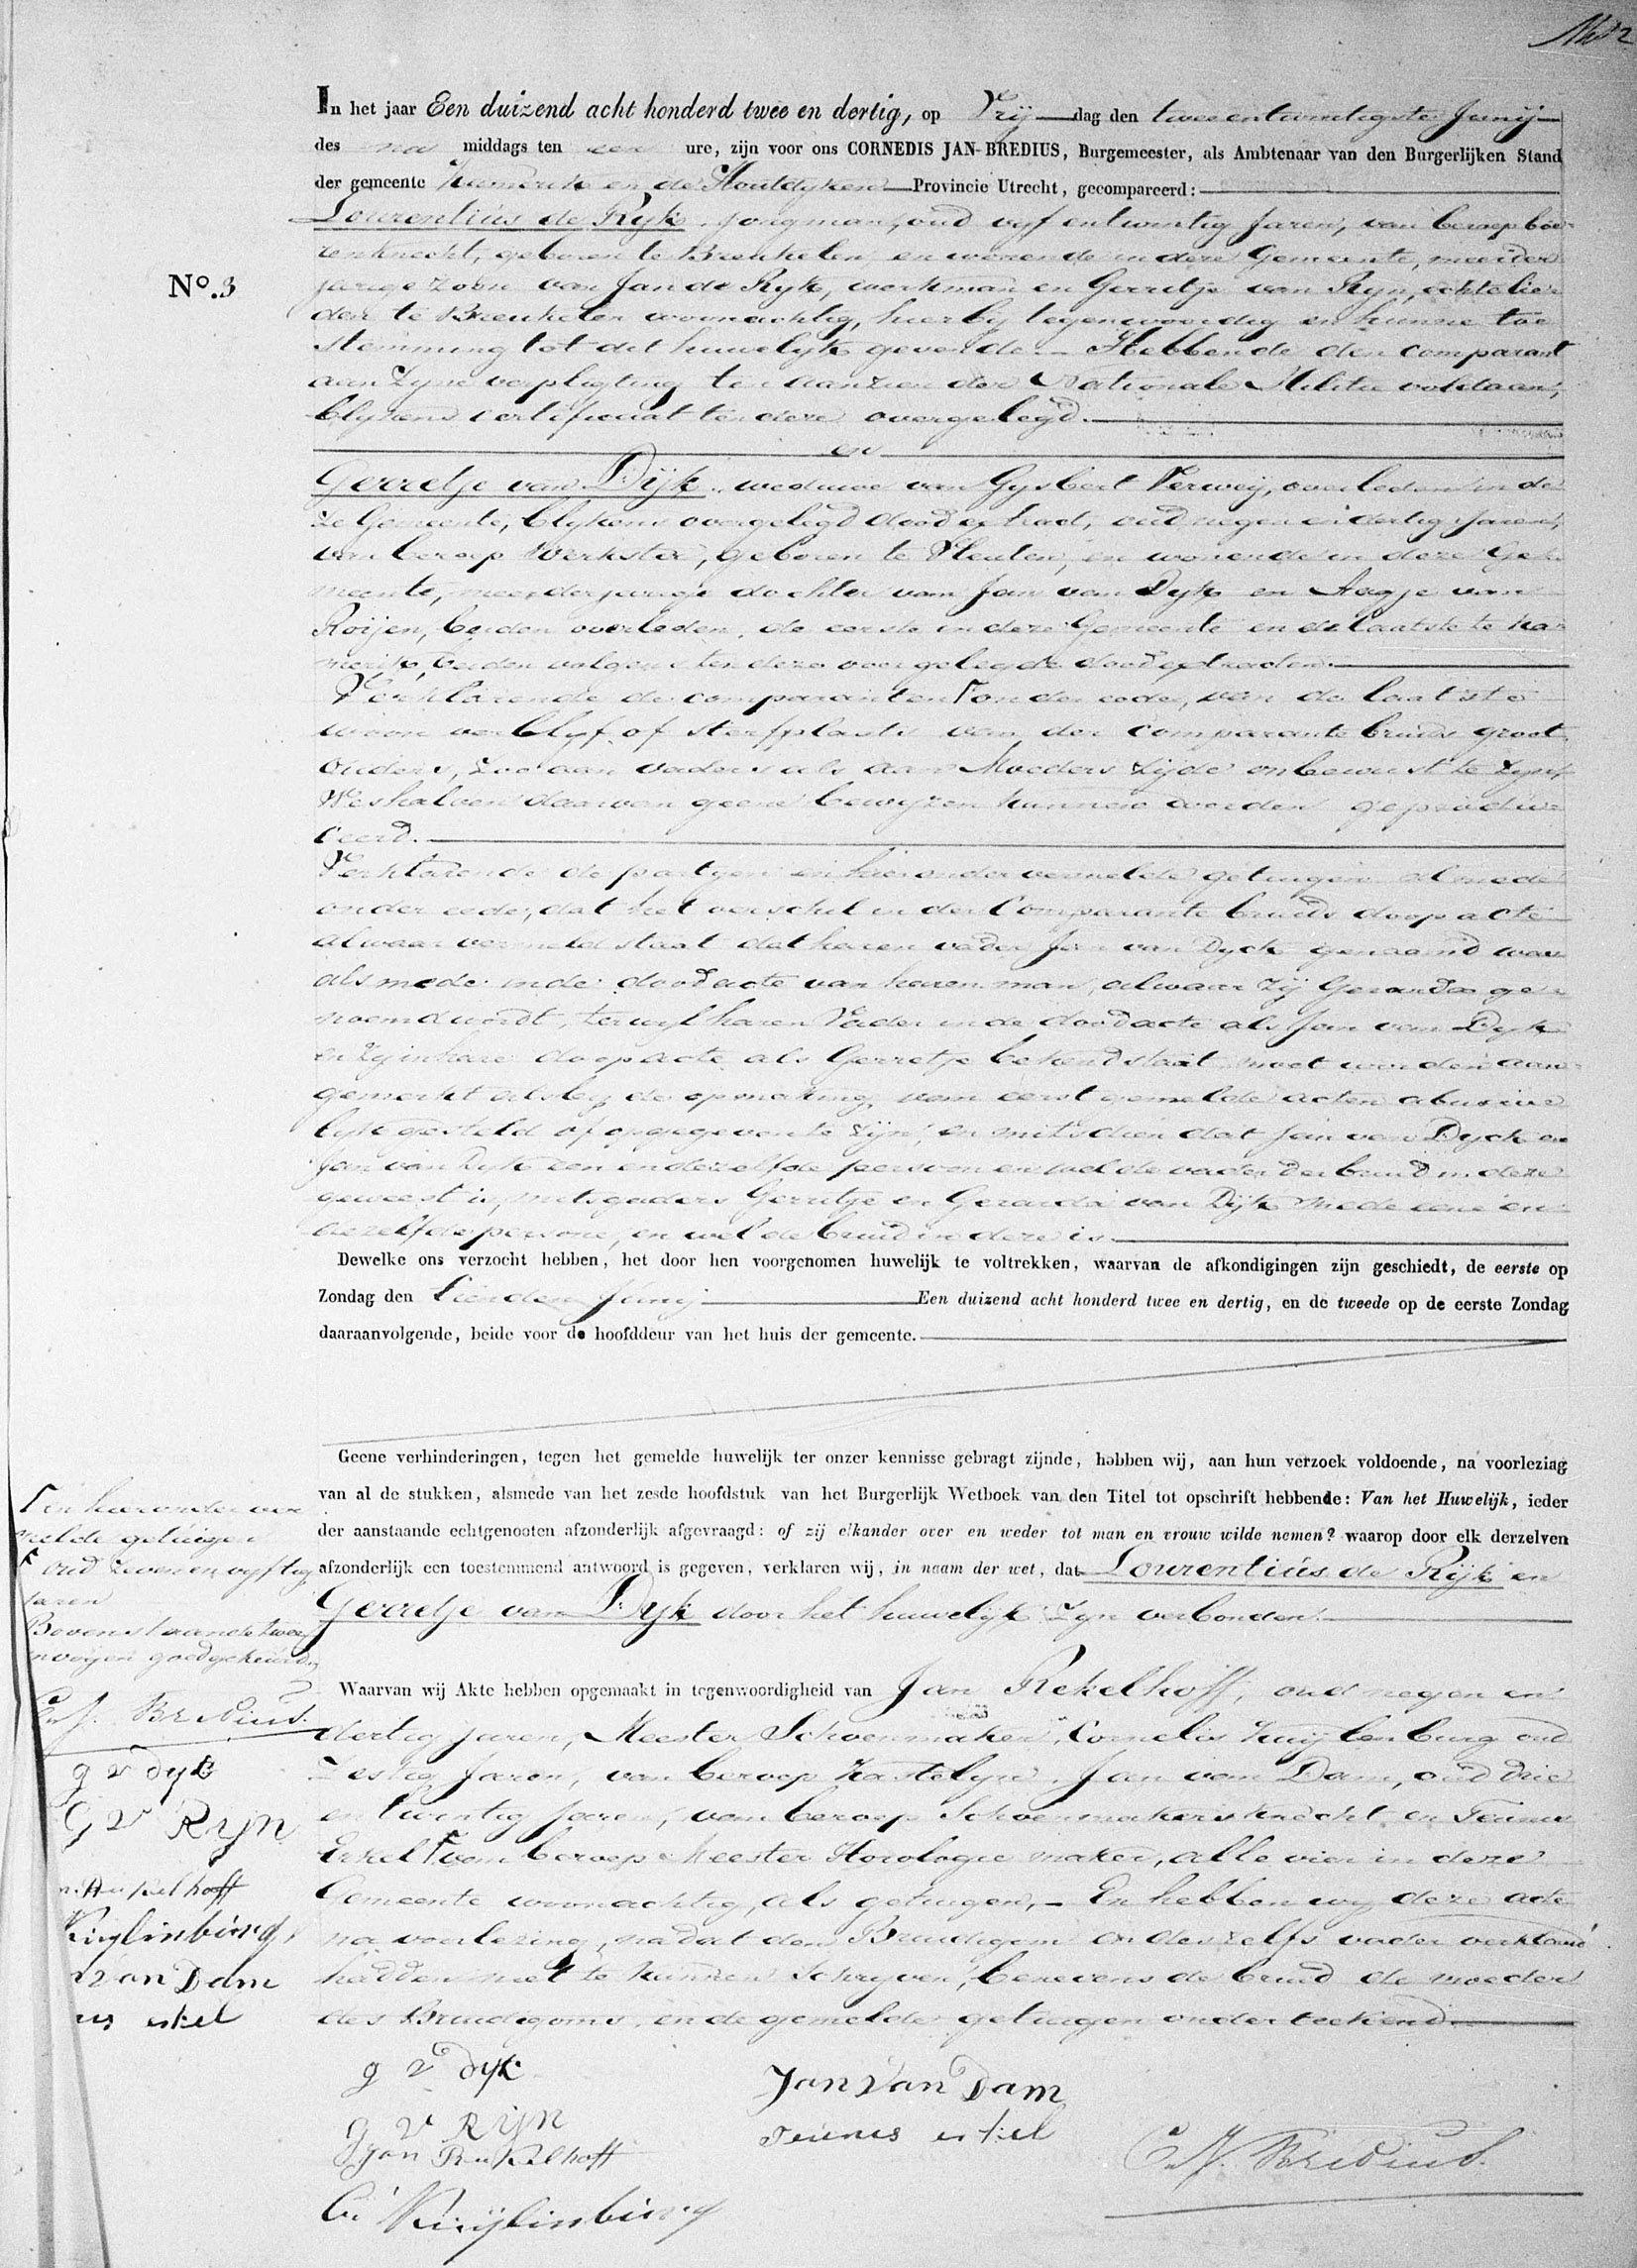 In het jaar Een duizend acht honderd twee en dertig, op Vrij dag den twee en twintigste Junij
des na middags ten een ure, zijn voor ons CORNEDIS JAN BREDIUS, Burgemeester, als Ambtenaar van den Burgerlijken Stand
der gemeente Kamerik en de Houtdyken Provincie Utrecht, gecompareerd:
Lourentius de Ryk, jongman, oud vyf en twintig Jaren, van beroep boe-
renknecht, geboren te Breukelen, en wonende in deze Gemeente, meerder-
jarige zoon van Jan de Ryk, werkman en Gerritje van Ryn, echtelie-
den te Breukelen woonachtig, hierby tegenwoordig en hunne toe-
stemming tot dit huwelyk gevende. Hebbende den comparant
aan zyne verpligting ten aanzien der Nationale Militie voldaan,
blykens certificaat ten deze overgelegd.
en
Gerretje van Dijk, weduwe van Gysbert Verweij, overleden in de-
ze Gemeente, blykens overgelegd dood extract, oud negen en dertig Jaren,
van beroep Werkster, geboren te Vleuten, en wonende in deze Ge-
meente, meerderjarige dochter van Jan van Dyk en Aagje van
Roijen, beiden overleden, de eerste in deze Gemeente en de laatste te Ka-
merik, beiden volgens ten deze overgelegde dood extracten.
Verklarende de comparanten onder eede, van de laatste
woon verblyf of sterfplaats van der comparante bruids groot
ouders, zoo aan vaders als aan Moeders zijde onbewust te zyn,
Weshalven daarvan geene bewyzen kunnen worden geprodu-
ceerd.
Verklarende de partyen en hieronder vermelde getuigen al mede
onder eede, dat het verschil in der Comparante bruids doop acte
alwaar vermeld staat dat haren vader Jan van Dyck genaamd was
als mede in de dood acte van haren man, alwaar zij Gerarda ge-
noemd wordt, terwyl haren Vader in de dood acte als Jan van Dyk
en zy in hare doop acte als Gerretje bekend staat, moet worden aan-
gemerkt als by de opmaking van eerst gemelde acten abusive-
lyk gesteld of opgegeven te zijn, en mitsdien dat Jan van Dyck en
Jan van Dyk een en dezelfde persoon en wel de vader der bruid in deze
geweest is, mitsgaders Gerritje en Gerarda van Dijk mede eene en
dezelfde persone, en wel de bruid in deze is.
Dewelke ons verzocht hebben, het door hen voorgenomen huwelijk te voltrekken, waarvan de afkondigingen zijn geschiedt, de eerste op
Zondag den tienden Junij Een duizend acht honderd twee en dertig, en de tweede op de eerste Zondag
daaraanvolgende, beide voor de hoofddeur van het huis der gemeente.
Geene verhinderingen, tegen het gemelde huwelijk ter onzer kennisse gebragt zijnde, hebben wij, aan hun verzoek voldoende, na voorleziag
van al de stukken, alsmede van het zesde hoofdstuk van het Burgerlijk Wetboek van den Titel tot opschrift hebbende: Van het Huwelijk, ieder
der aanstaande echtgenooten afzonderlijk afgevraagd: of zij elkander over en weder tot man en vrouw wilde nemen? waarop door elk derzelven
afzonderlijk een toestemmend antwoord is gegeven, verklaren wij, in naam der wet, dat Lourentius de Rijk en
Gerretje van Dyk door het huwelyk zyn verbonden.
Waarvan wij Akte hebben opgemaakt in tegenwoordigheid van Jan Rekelhoff, oud negen en
dertig jaren, Meester Schoenmaker, Cornelis Kuijlenburg oud
Zestig Jaren, van beroep Kastelyn, Jan van Dam, oud drie
en twintig Jaren, van beroep Schoenmakers knecht en Teunis
Erkel van beroep Meester Horologie maker, alle vier in deze
Gemeente woonachtig, als getuigen, En hebben wy deze acte
na voorlezing, nadat den Bruidigom en deszelfs vader verklaard
hadden niet te kunnen Schryven, benevens de bruid de moeder
des Bruidigoms, en de gemelde getuigen onderteekend.
g v dyk
g v Rijn
Jan Rekelhoff
C. Kuijlinburg
Jan van Dam
Teunis erkel
C. J. Bredius.
No. 3
en hieronder ver
melde getuigen
oud zeven en vyftig
jaren
Bovenstaande twee
nvoijen goedgekeurd
C. J. Bredius.
g v dyk
G V Rijn
n Rekelhoff
Kuijlinburg
n van Dam
us erkel